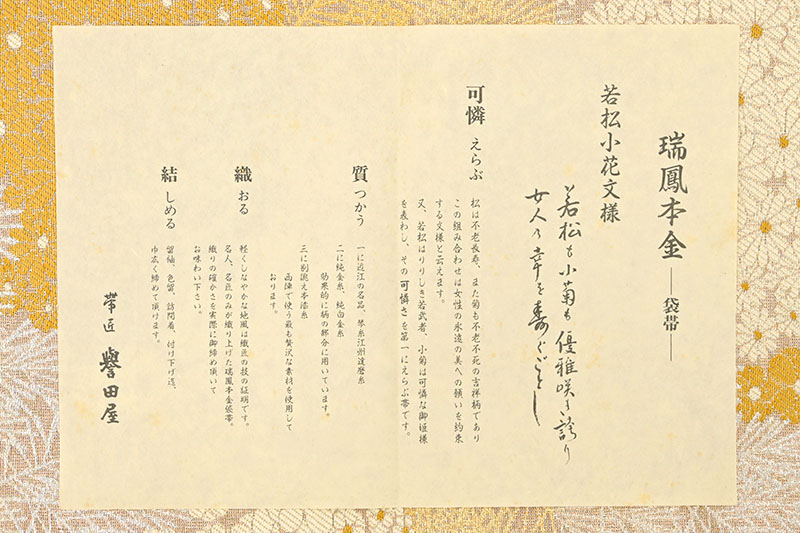 瑞鳳本金――袋帯――
若松小花文様
若松も小菊も優雅咲き誇り
女人の幸を寿ぐごとし
可憐 えらぶ
松は不老長寿、また菊も不老不死の吉祥柄であり
この組み合わせは女性の永遠の美への願いを約束
する文様と云えます。
又、若松はりりしき若武者、小菊は可憐な御姫様
を表わし、その可憐さを第一にえらぶ帯です。
質 つかう
一に近江の名品、琴糸江州達磨糸
二に純金糸、純白金糸
効果的に柄の部分に用いています。
三に別誂え本漆糸
西陣で使う最も贅沢な素材を使用して
おります。
織 おる
軽くしなやかな地風は織匠の技の証明です。
名人、名匠のみが織り上げた瑞鳳本金袋帯。
織りの確かさを実際に御締め頂いて
お味わい下さい。
結 しめる
留袖、色留、訪問着、付け下げ迄、
巾広く締めて頂けます。
帯匠 誉田屋